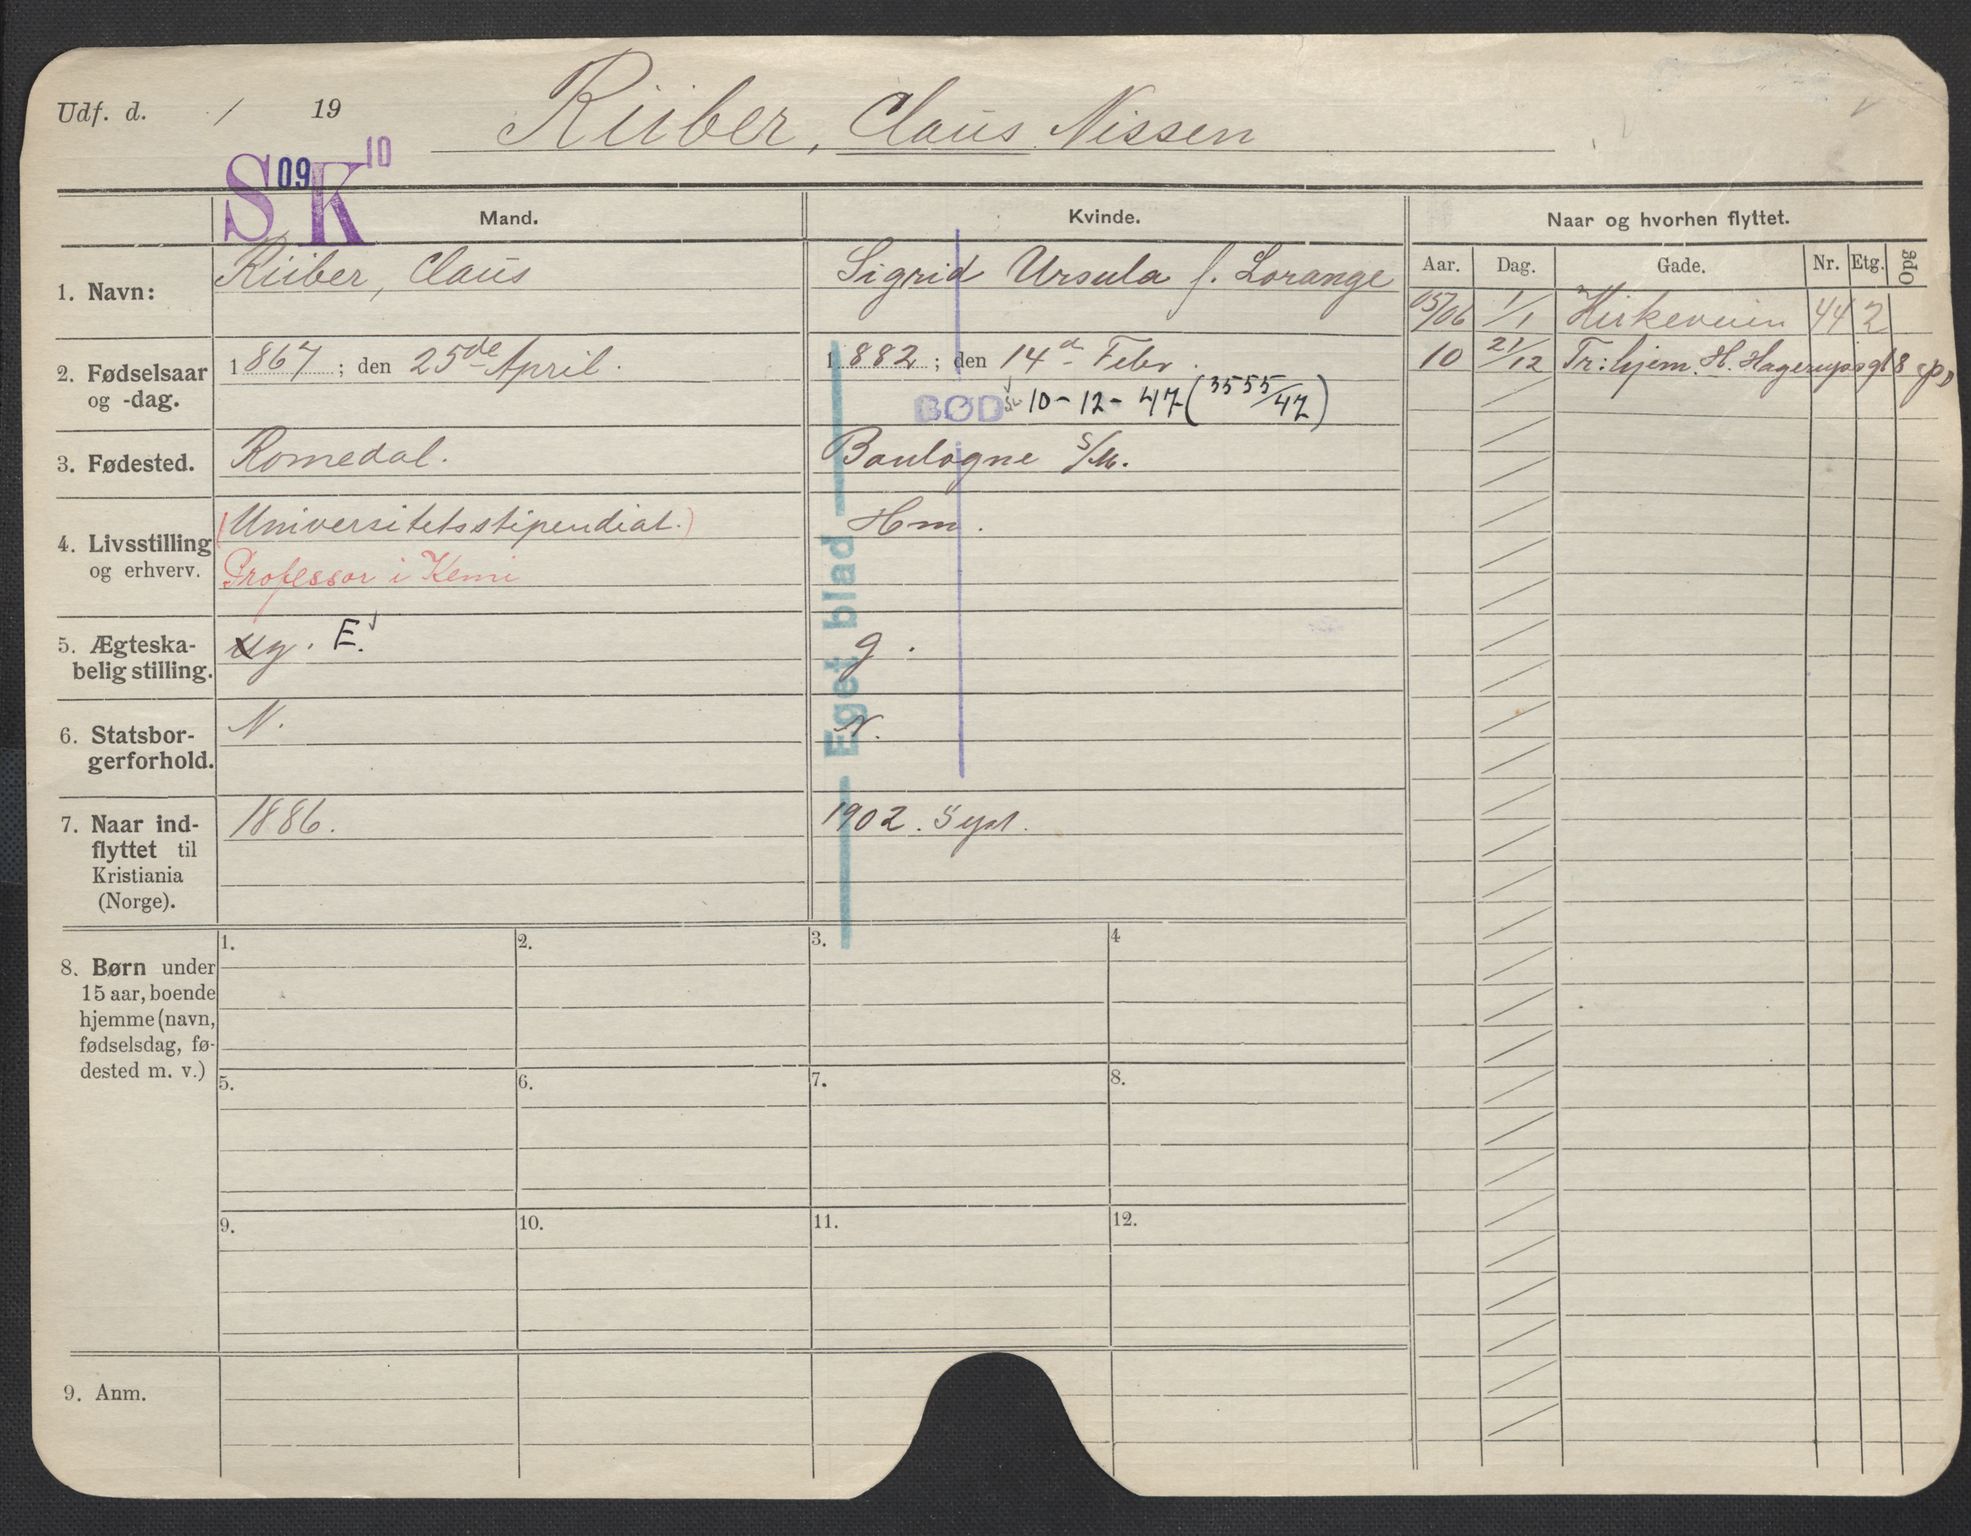 Udf. d. / 19
Riiber, Claus Nissen
S 09 K 10
Mand.
Kvinde.
Naar og hvorhen flyttet.
Aar. Dag. Gade. Nr. Etg. Opg
1. Navn:
Riiber, Claus
Sigrid Ursula f. Lorange
05/06 1/1 Kirkeveien 44 2
2. Fødselsaar
og -dag.
1867; den 25de April.
1882; den 14d Febr.
10 21/12 Tr: hjem. H. Hagerupsgt 8
BØD 10-12-47 (3555/47)
3. Fødested.
Romedal.
Boulogne S/M.
4. Livsstilling
og erhverv.
(Universitetsstipendiat.)
Professor i Kemi
Hm.
5. Ægteska-
belig stilling.
ug. E.
g.
6. Statsbor-
gerforhold.
N.
N.
— Eget blad —
7. Naar ind-
flyttet til
Kristiania
(Norge).
1886.
1902. Sept.
8. Børn under
15 aar, boende
hjemme (navn,
fødselsdag, fø-
dested m. v.)
1. 2. 3. 4
5. 6. 7. 8.
9. 10. 11. 12.
9. Anm.